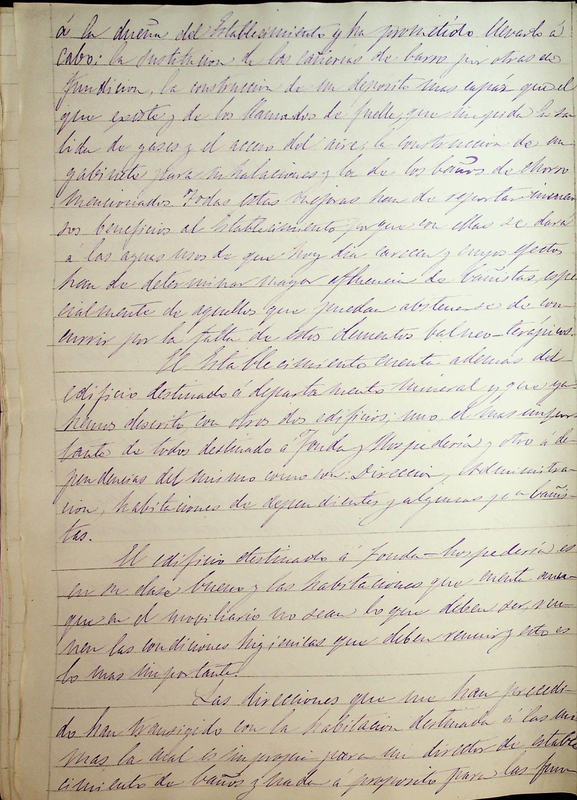 á la dueña del Establecimiento y ha prometido llevarlo á
cabo: la sustitucion de las cañerias de barro por otras de
fundicion, la construccion de un deposito mas capáz que el
que existe y de los llamados de fuelle, que impida la sa
lida de gases y el acceso del aire, la construccion de un
gabinete para inhalaciones y la de los baños de chorro
mencionados. Todas estas mejoras han de reportar inmen
sos beneficios al Establecimiento porque con ellas se dará
á las aguas usos de que hoy dia carecen y cuyos efectos
han de determinar mayor afluencia de bañistas, espe
cialmente de aquellos que puedan abstenerse de con-
currir por la falta de estos elementos balneo-terápicos.
El Establecimiento cuenta además del
edificio destinado á departamento mineral y que ya
hemos descrito con otros dos edificios; uno, el mas impor
tante de todos destinado á Fonda y Hospedería y otro á de
pendencias del mismo como son: Direccion, Administra
cion, habitaciones de dependientes y algunas para bañis
tas.
El edificio destinado á fonda-hospedería es
en su clase bueno y las habitaciones que cuenta aun-
que en el mobiliario no sean lo que deben ser, reu-
nen las condiciones higienicas que deben reunir y esto es
lo mas importante.
Las direcciones que me han precedi-
do han transigido con la habitacion destinada á las mis
mas la cual es impropia para un director de estable
cimiento de baños y nada á proposito para las fun